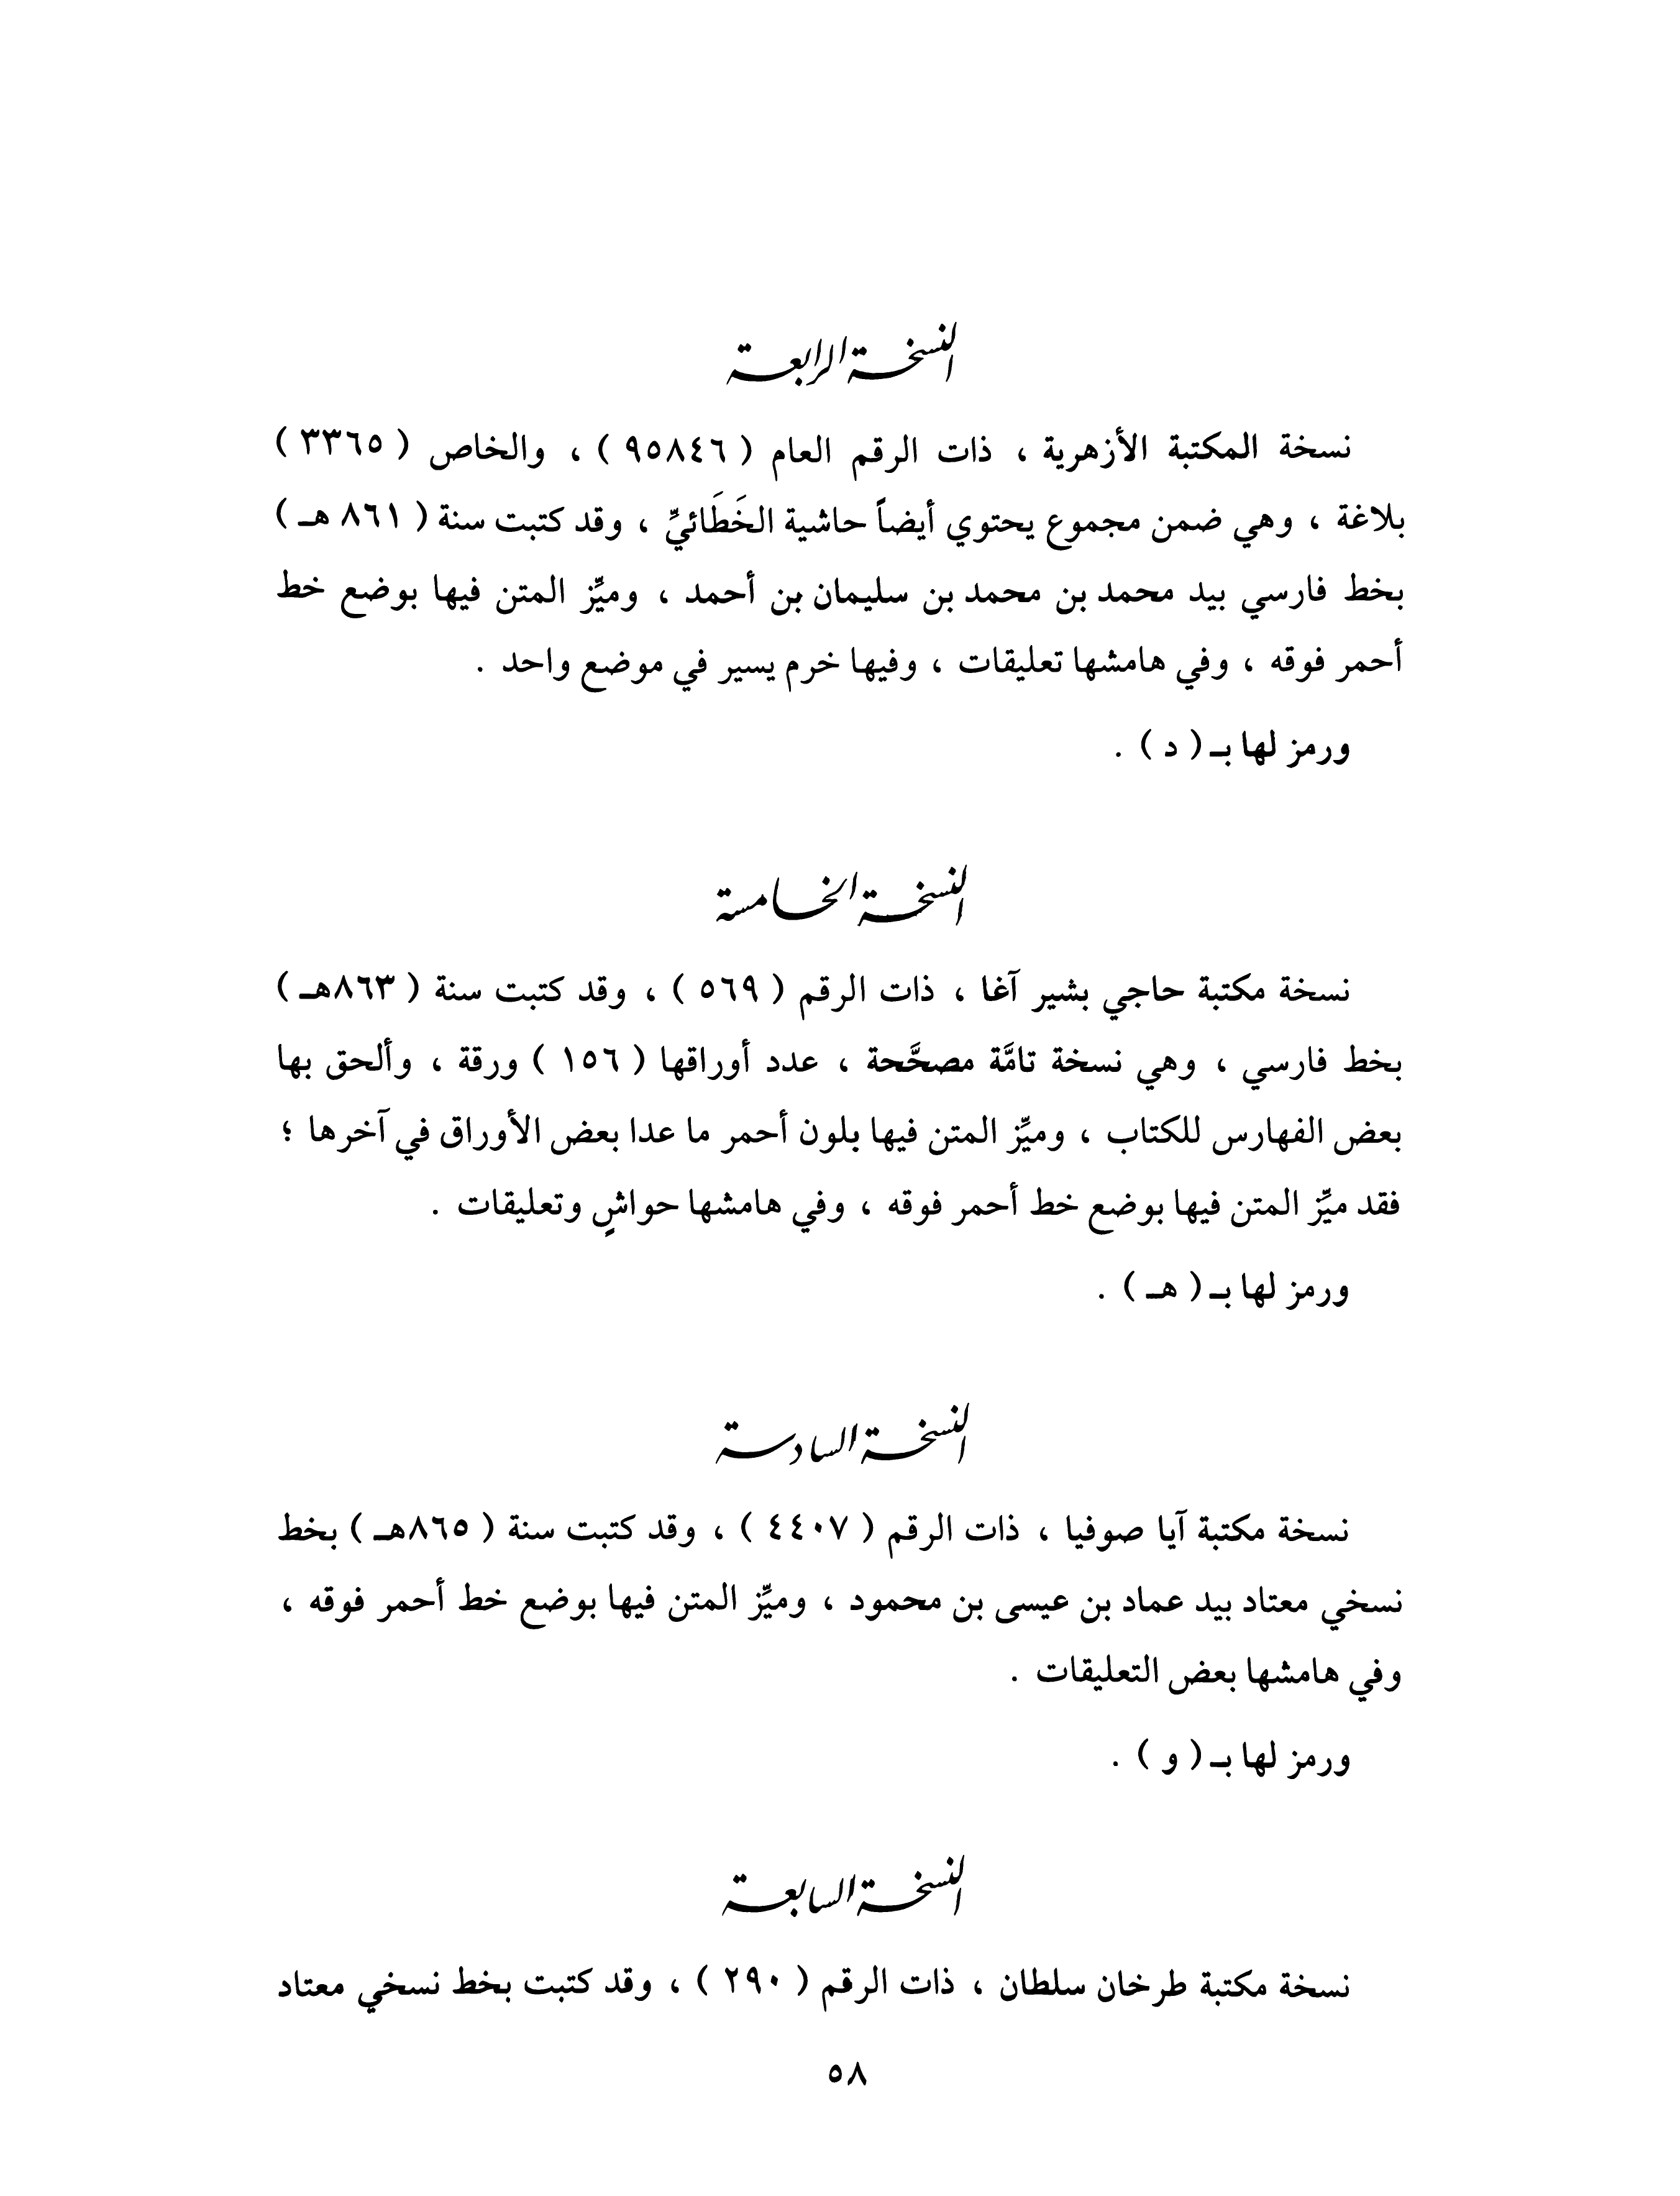 النسخة الرابعة
نسخة المكتبة الأزهرية ، ذات الرقم العام ( ٩٥٨٤٦ ) ، والخاص ( ٣٣٦٥ )
بلاغة ، وهي ضمن مجموع يحتوي أيضاً حاشية الخَطَائيِّ ، وقد كتبت سنة ( ٨٦١ هـ )
بخط فارسي بيد محمد بن محمد بن سليمان بن أحمد ، وميِّز المتن فيها بوضع خط
أحمر فوقه ، وفي هامشها تعليقات ، وفيها خرم يسير في موضع واحد .
ورمز لها بـ ( د ) .
النسخة الخامسة
نسخة مكتبة حاجي بشير آغا ، ذات الرقم ( ٥٦٩ ) ، وقد كتبت سنة ( ٨٦٣هـ )
بخط فارسي ، وهي نسخة تامَّة مصحَّحة ، عدد أوراقها ( ١٥٦ ) ورقة ، وألحق بها
بعض الفهارس للكتاب ، وميِّز المتن فيها بلون أحمر ما عدا بعض الأوراق في آخرها ؛
فقد ميِّز المتن فيها بوضع خط أحمر فوقه ، وفي هامشها حواشٍ وتعليقات .
ورمز لها بـ ( هـ ) .
النسخة السادسة
نسخة مكتبة آيا صوفيا ، ذات الرقم ( ٤٤٠٧ ) ، وقد كتبت سنة ( ٨٦٥هـ ) بخط
نسخي معتاد بيد عماد بن عيسى بن محمود ، وميِّز المتن فيها بوضع خط أحمر فوقه ،
وفي هامشها بعض التعليقات .
ورمز لها بـ ( و ) .
النسخة السابعة
نسخة مكتبة طرخان سلطان ، ذات الرقم ( ٢٩٠ ) ، وقد كتبت بخط نسخي معتاد
٥٨